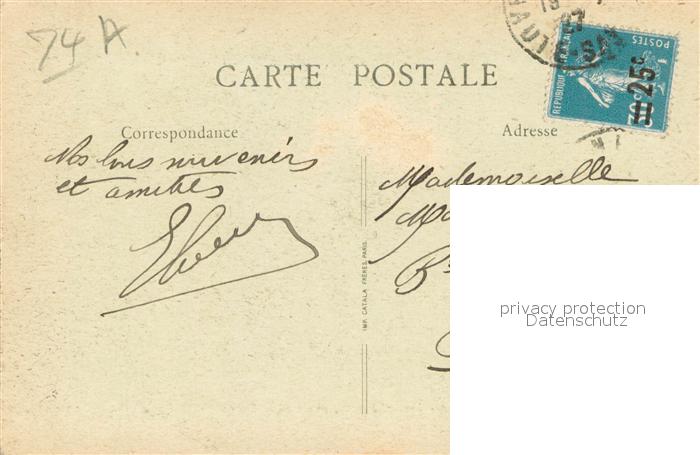 74 A
CARTE POSTALE
Correspondance
Adresse
Nos bons souvenirs
et amitiés
Mademoiselle
IMP. CATALA FRÈRES, PARIS
POSTES
=25c
privacy protection
Datenschutz